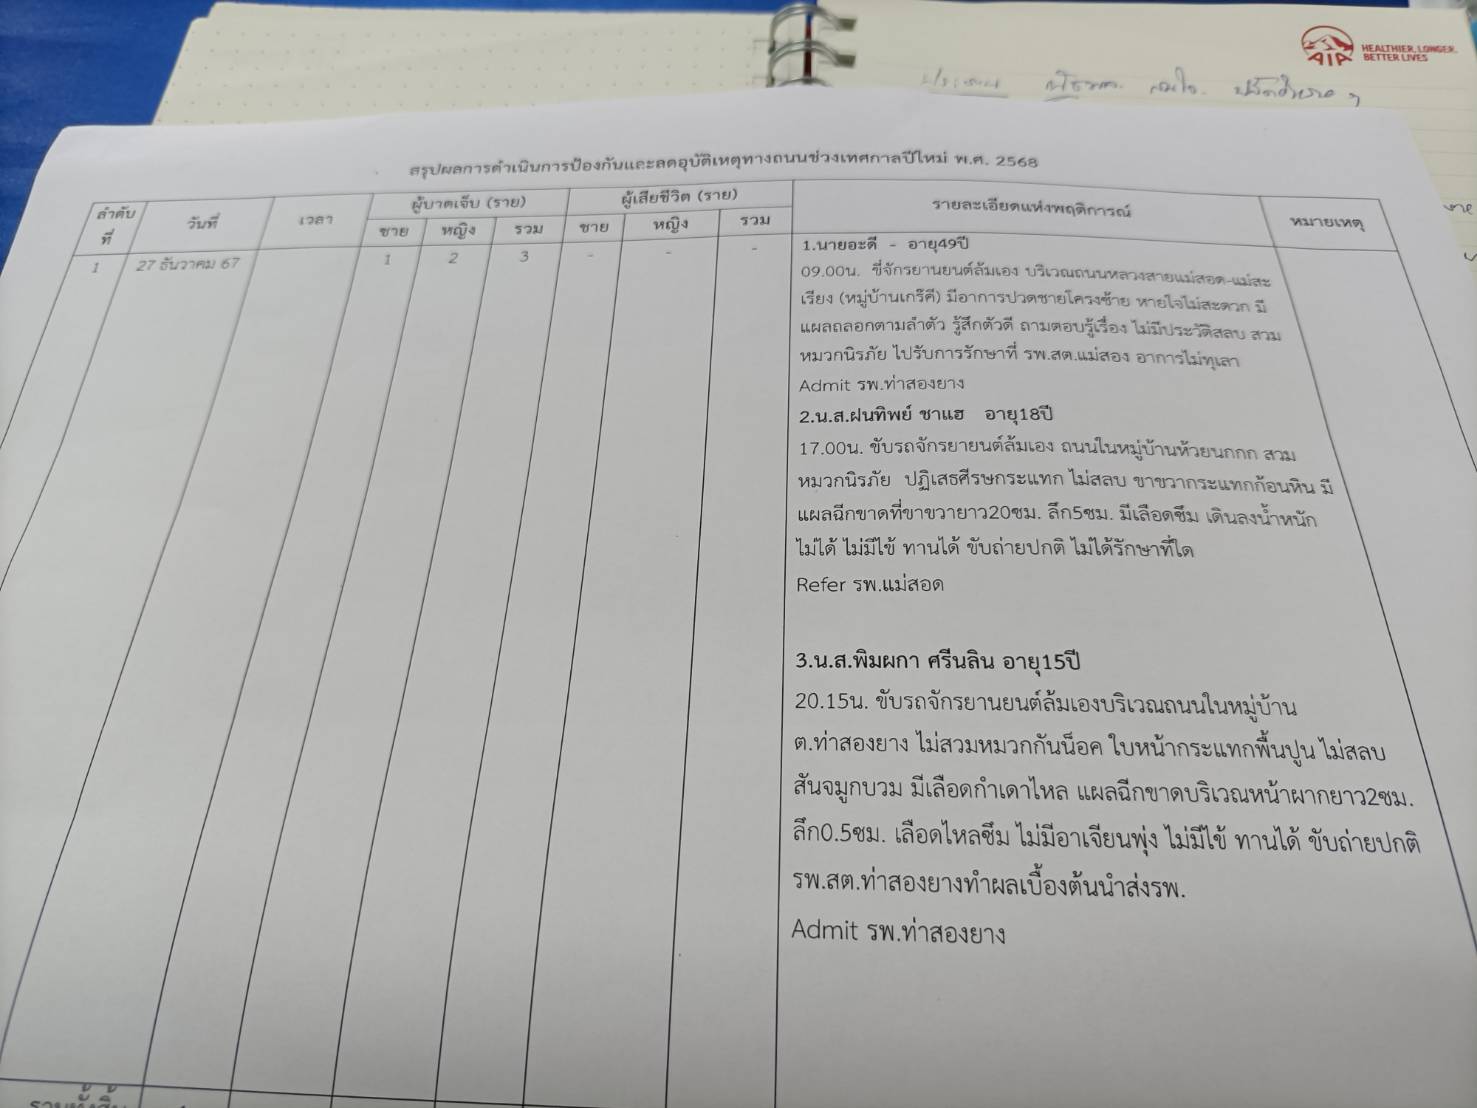 HEALTHIER, LONGER,
BETTER LIVES
AIA
สรุปผลการดำเนินการป้องกันและลดอุบัติเหตุทางถนนช่วงเทศกาลปีใหม่ พ.ศ. 2568
ลำดับที่ วันที่ เวลา ผู้บาดเจ็บ (ราย) ผู้เสียชีวิต (ราย) รายละเอียดแห่งพฤติการณ์ หมายเหตุ
ชาย หญิง รวม ชาย หญิง รวม
1 27 ธันวาคม 67 1 2 3 - - -
1.นายอะดี - อายุ49ปี
09.00น. ขี่จักรยานยนต์ล้มเอง บริเวณถนนหลวงสายแม่สอด-แม่สะ
เรียง (หมู่บ้านเกร๊คี) มีอาการปวดชายโครงซ้าย หายใจไม่สะดวก มี
แผลถลอกตามลำตัว รู้สึกตัวดี ถามตอบรู้เรื่อง ไม่มีประวัติสลบ สวม
หมวกนิรภัย ไปรับการรักษาที่ รพ.สต.แม่สอง อาการไม่ทุเลา
Admit รพ.ท่าสองยาง
2.น.ส.ฝนทิพย์ ชาแฮ อายุ18ปี
17.00น. ขับรถจักรยายนต์ล้มเอง ถนนในหมู่บ้านห้วยนกกก สวม
หมวกนิรภัย ปฏิเสธศีรษกระแทก ไม่สลบ ขาขวากระแทกก้อนหิน มี
แผลฉีกขาดที่ขาขวายาว20ซม. ลึก5ซม. มีเลือดซึม เดินลงน้ำหนัก
ไม่ได้ ไม่มีไข้ ทานได้ ขับถ่ายปกติ ไม่ได้รักษาที่ใด
Refer รพ.แม่สอด
3.น.ส.พิมผกา ศรีนลิน อายุ15ปี
20.15น. ขับรถจักรยานยนต์ล้มเองบริเวณถนนในหมู่บ้าน
ต.ท่าสองยาง ไม่สวมหมวกกันน็อค ใบหน้ากระแทกพื้นปูน ไม่สลบ
สันจมูกบวม มีเลือดกำเดาไหล แผลฉีกขาดบริเวณหน้าผากยาว2ซม.
ลึก0.5ซม. เลือดไหลซึม ไม่มีอาเจียนพุ่ง ไม่มีไข้ ทานได้ ขับถ่ายปกติ
รพ.สต.ท่าสองยางทำผลเบื้องต้นนำส่งรพ.
Admit รพ.ท่าสองยาง
รวมทั้งสิ้น